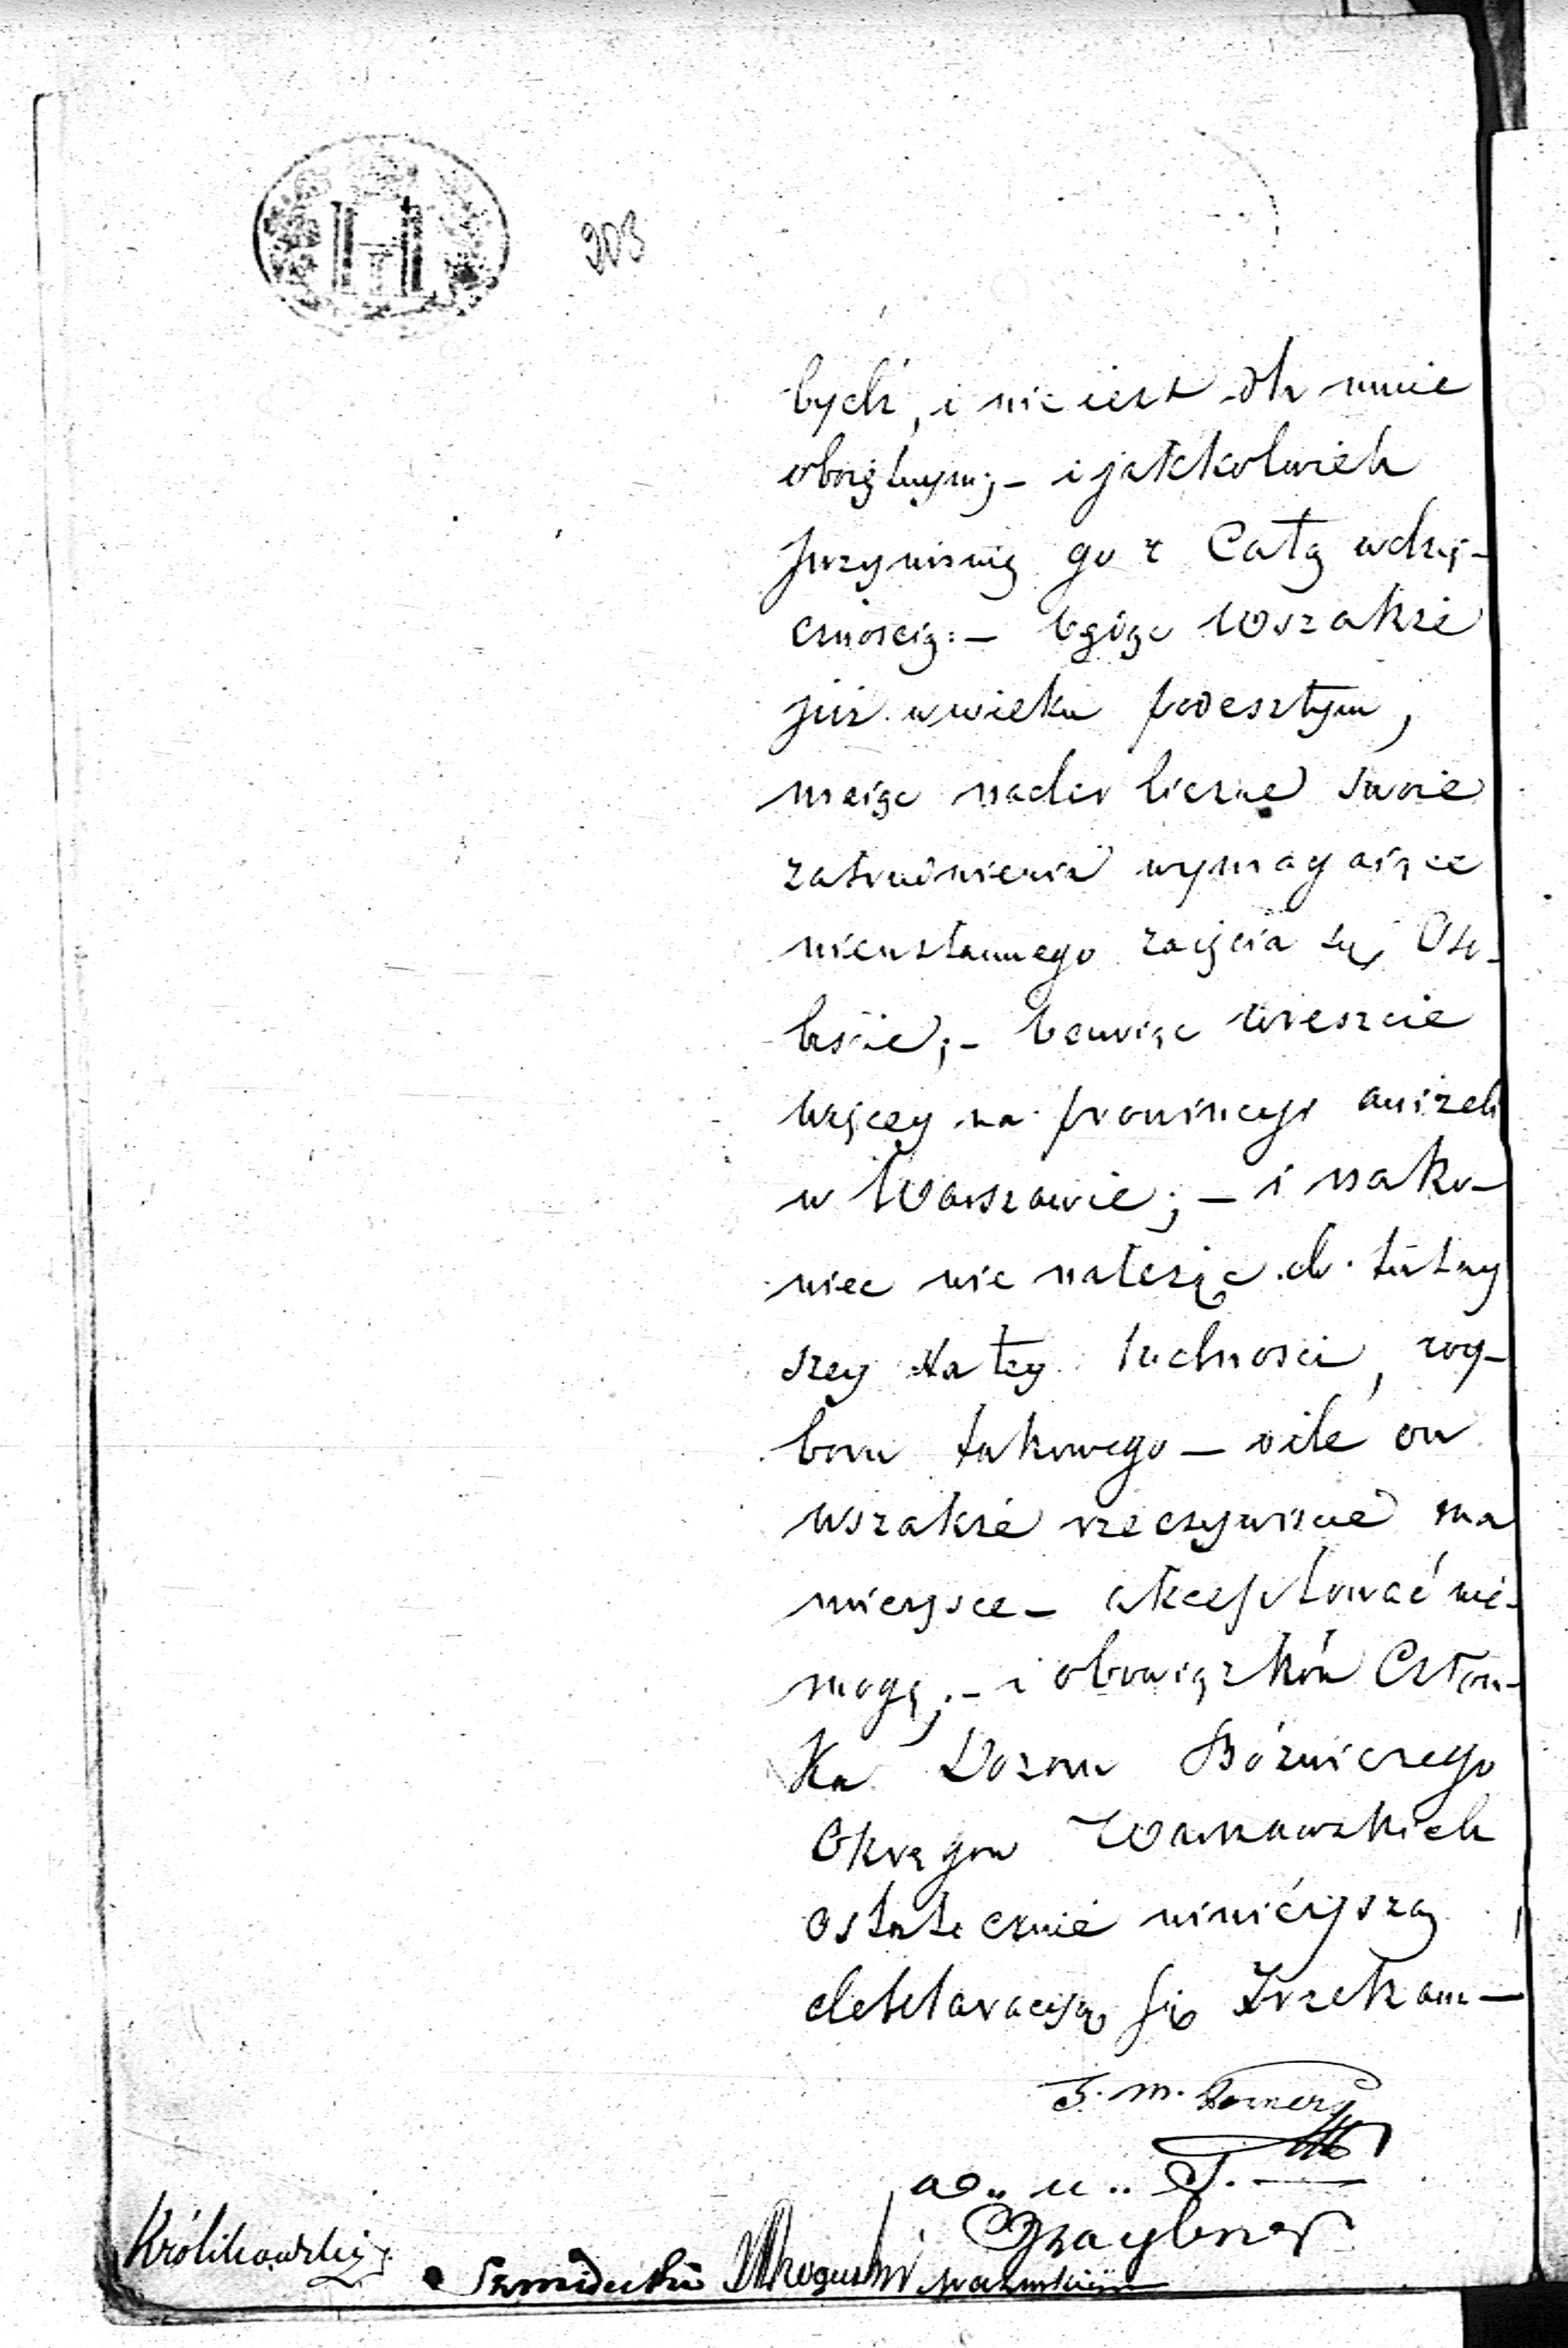 903
bydź, i nie iest dla mnie
oboiętnym; – i jakkolwiek
przyimuię go z Całą wdzię-
cznością: – będąc Wszakże
już w wieku podeszłym,
maiąc nader liczne swoie
zatrudnienia wymagaiące
nieustannego zaięcia się Oso-
biście; – bawiąc wreszcie
więcey na prowincyi aniżeli
w Warszawie; – i nako-
niec nie należąc do tutey
szey stałey ludności, wy-
boru takowego – oile on
wszakże rzeczywiście ma
mieysce – akceptować nie-
mogę; – i obowiązków Człon-
Ka Dozoru Bóżniczego
Okręgów Warszawskich
ostatecznie ninieyszą
deklaracyą się Zrzekam –
J. M.
Królikowski